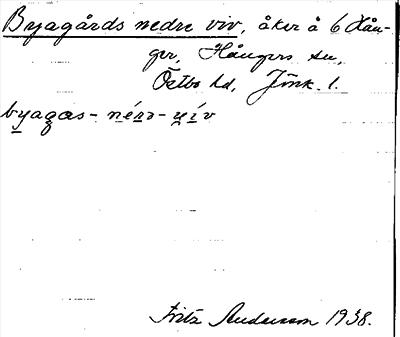 Byagårds nedre viv, åker å 6 Hån-
ger, Hångers sn,
Östbo hd, Jönk. l.
byagas- nérə- vív
Fritz Andersson 1938.